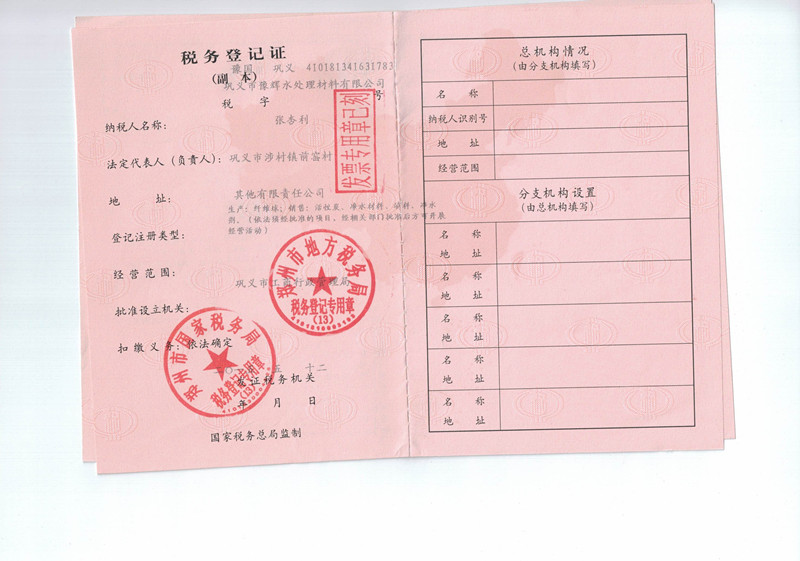 税务登记证
豫国 巩义 410181341631783
(副 本)
巩义市豫辉水处理材料有限公司
税 字 号
纳税人名称:
张杏利
法定代表人(负责人):
巩义市涉村镇前窑村
发票专用章已刻
地 址:
其他有限责任公司
生产:纤维球;销售:活性炭、净水材料、填料、
剂。(依法须经批准的项目,经相关部门批准后方可开展
登记注册类型:
经营活动)
经营范围:
巩义市工商行政管理局
批准设立机关:
扣缴义务:依法确定
郑州市地方税务局
税务登记专用章
(13)
郑州市国家税务局
税务登记专用章
(13)
五 十二
发证税务机关
年 月 日
国家税务总局监制
总机构情况
(由分支机构填写)
名 称
纳税人识别号
地 址
经营范围
分支机构设置
(由总机构填写)
名 称
地 址
名 称
地 址
名 称
地 址
名 称
地 址
名 称
地 址